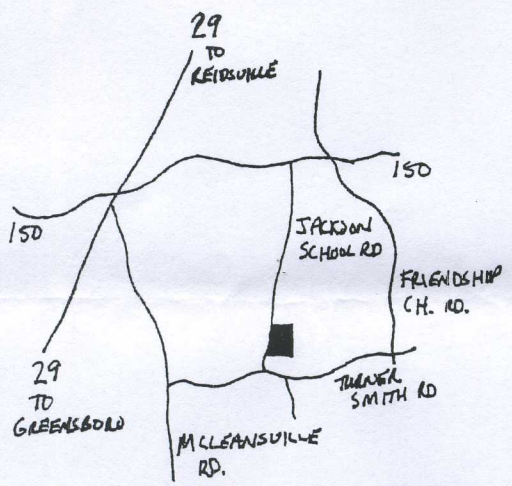 29
TO
REIDSVILLE
150
150
JACKSON
SCHOOL RD
FRIENDSHIP
CH. RD.
29
TO
GREENSBORO
TURNER
SMITH RD
MCLEANSVILLE
RD.